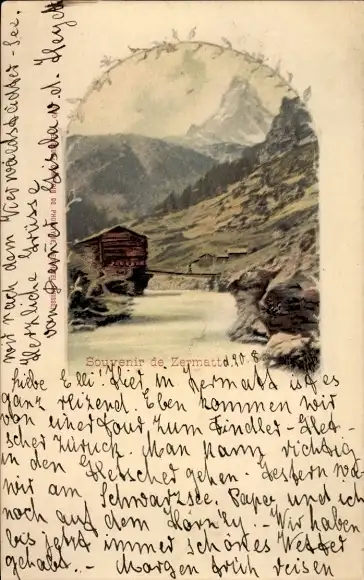 Souvenir de Zermatt
d. 20. 8.
Liebe Elli! Hier in Zermatt ist es
ganz reizend. Eben kommen wir
von einer Tour zum Findler-Glet-
scher zurück. Man kann richtig
in den Gletscher gehen. Gestern wa
wir am Schwarzsee. Papa und ich
noch auf dem Hörnly. - Wir haben
bis jetzt immer schönes Wetter
gehabt. - Morgen früh reisen
wir nach dem Vierwaldstädter-See.
Herzliche Grüsse
von Deiner Gisela v. d. Heydt